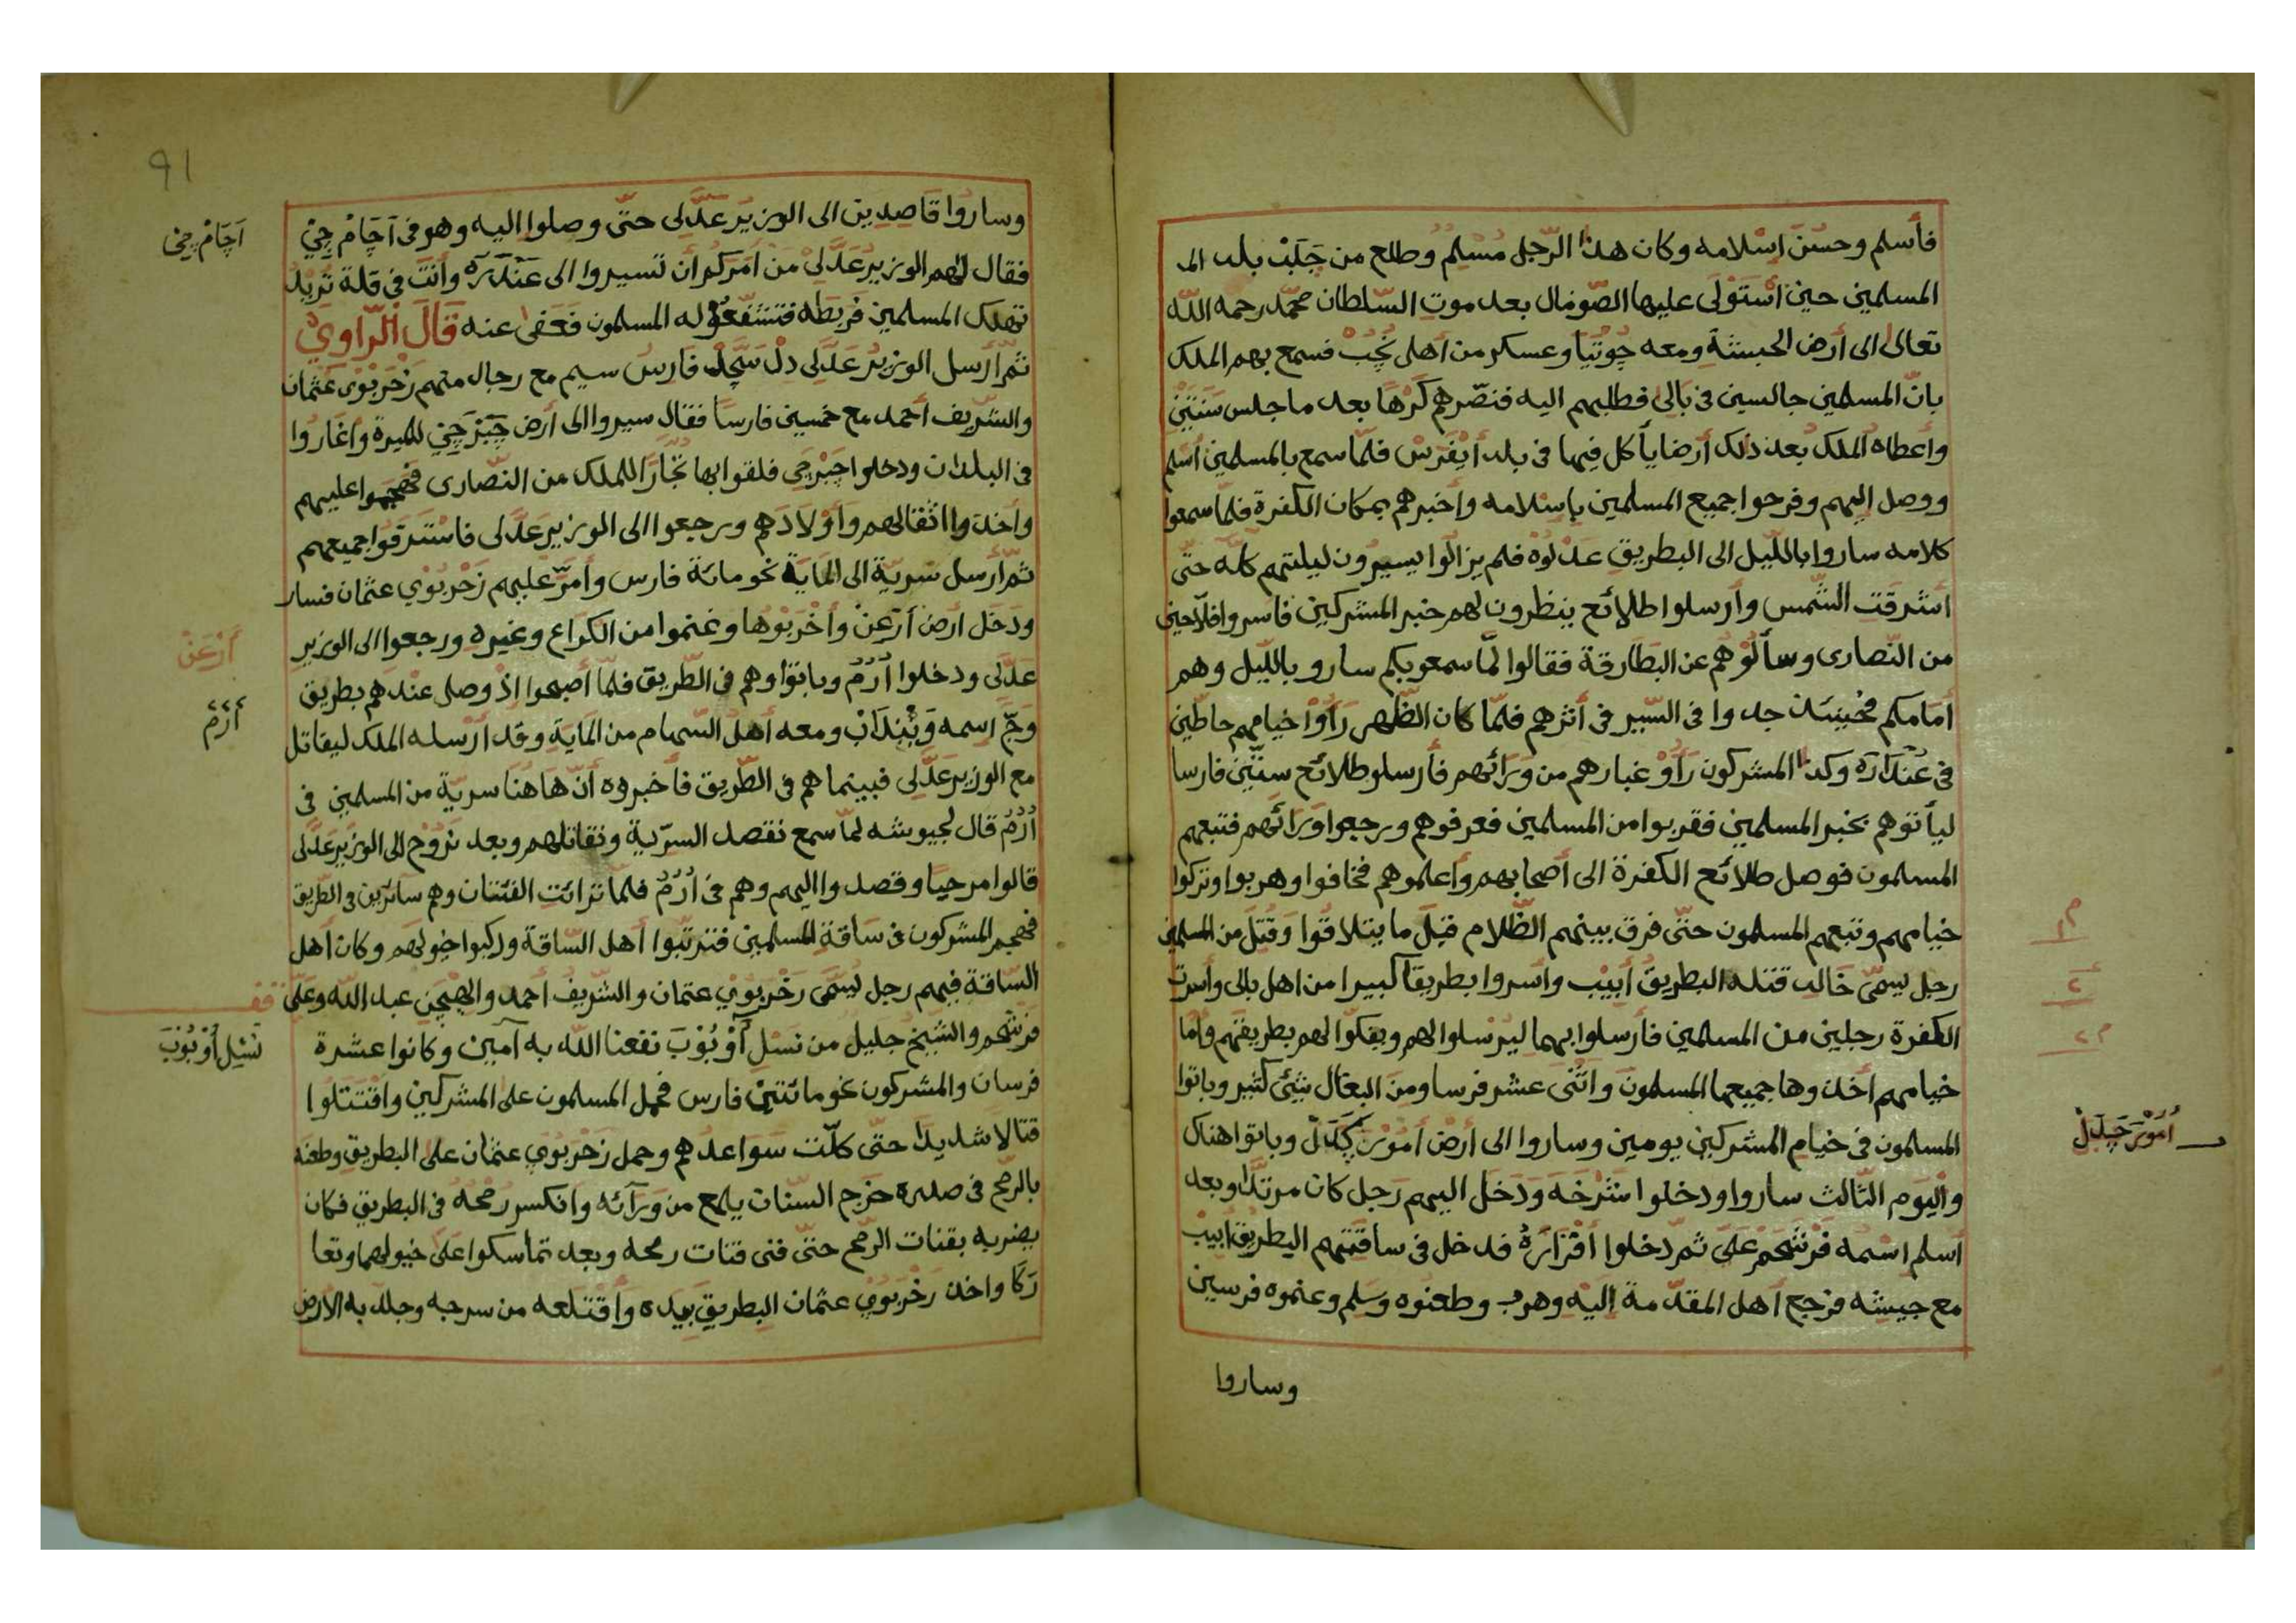 فأسلم وحسن اسلامه وكان هذا الرّجل مُسْلِمٌ وطلع من جَلَبْ بلد الـ
المسلمين حين اسْتَوْلَى عليها الصّومال بعد موت السّلطان محمّد رحمه اللّه
تعالى الى أرض الحبشة ومعه چُوتِيَا وعسكر من أهل نُجُبْ فسمع بهم الملك
بانّ المسلمين جالسين في بَالِى فطلبهم اليه فنصّرهم كَرْهًا بعد ما جلس سَنَتَيْنِ
وأعطاه الملك بعد ذلك أرضا يأكل فيها في بلد أَيْفَرْسْ فلمّا سمع بالمسلمين أسلم
ووصل اليهم وفرحوا جميع المسلمين بإسلامه وأخبرهم بمكان الكفرة فلمّا سمعوا
كلامه ساروا باللّيل الى البطريق عَدْلُوْهْ فلم يزالوا يسيرون ليلتهم كلّه حتّى
أشرقت الشّمس وأرسلوا طلائع ينظرون لهم خبر المشركين فاسروا فلّاحين
من النّصارى وسألُوْهم عن البَطَارقة فقالوا لمّا سمعو بكم سارو باللّيل وهم
أمامكم فحينئذ جدوا في السّير في أثرهم فلمّا كان الظّهر رَأَوْا خيامهم حاطّين
في عَنْدَارَهْ وكذا المشركون رَأَوْ غبارهم من وَرَائهم فأرسلو طلائع ستّين فارسا
ليأتوهم بخبر المسلمين فقربوا من المسلمين فعرفوهم ورجعوا وَرَائَهم فتبعهم
المسلمون فوصل طلائع الكفرة الى أصحابهم وأعلموهم فخافوا وهربوا وتركوا
خيامهم وتبعهم المسلمون حتّى فرق بينهم الظّلام قبل ما يتلاقُوا وَقُتِلَ من المسلمين
رجل يسمّى خَالِد قتله البطريقُ أَبِيْب وأسروا بطريقًا كبيرا من اهل بالى وأسرت
الكفرة رجلين من المسلمين فأرسلوا بهما ليرْسلوا لهم ويفكّوا لهم بطريقهم وأمّا
خيامهم أخذوها جميعها المسلمون واثْنَى عشر فرسا ومن البغال شئ كثير وباتوا
المسلمون في خيام المشركين يومين وساروا الى أرض أَمُوْرَ چَدَلْ وباتوا هناك
واليوم الثّالث ساروا ودخلوا شَرْخَه وَدَخَل اليهم رَجل كان مرتدّا وبعد
أسلم اسْمه فَرْشَحَمْ عَلِى ثمّ دخلوا أَقْرَارَهْ فدخل في ساقتهم البطريق أبيب
مع جيشه فرجع أهل المقدّمة اليه وهرب وطعنُوه وسَلِم وغنموه فرسين
وساروا
أَمُوْرَ چَدَلْ
وساروا قَاصِدِين الى الوزير عَدَّلى حتّى وصلوا اليه وهو في آجَامْ جِيْ
فقال لهم الوزير عَدَّلِىْ من أَمَركم أن تسيروا الى عَنْدَرَهْ وأنت في قلة تُرِيْدُ
تهلك المسلمين فربَطَه فتشفّعُوْ له المسلمون فَعَفى عنه قَالَ الرَّاوِيْ
ثمّ أرسل الوزير عَدَّلى دلْ سَجَّدْ فَارس سيم مع رجال منهم زَحْرَبُوى عُثْمَان
والشّريف أحمد مع خمسين فارسا فقال سيروا الى أرض جَبَرْجِيْ للميرة وأغاروا
في البلدان ودخلوا جَبَرْجِى فلقوا بها تُجَّارًا للملك من النّصارى فهجموا عليهم
وأخذوا اثقالهم وأَوْلَادَهم ورجعوا الى الوزير عَدَّلى فاسْتَرَقُوا جميعهم
ثمّ أرسل سَرِيّة الى الْمَايَة نحو مائة فارس وأَمَرّ عليهم زَحْربُوي عثمان فسار
ودَخَل ارض أَرْعَنْ وأَخْرَبُوْها وغنموا من الكُراع وغيره ورجعوا الى الوزير
عدَّلى ودخلوا أُرُمُ وباتوا وهم في الطّريق فلمّا أصبحوا إذْ وصل عندهم بطريق
وَجّ اسمه وَثَنْدَابْ ومعه أهل السّهام من المَايَة وقد أرسله الملك ليقاتل
مع الوزير عَدَّلى فبينما هم في الطّريق فأخبروه أنّ هَاهُنَا سريّة من المسلمين في
أُرُمُ قال لجيوشه لمّا سمع نقصد السّريّة ونقاتلهم وبعد نَرُوْح الى الوزير عَدَّلى
قالوا مرحبا وقصدوا اليهم وهم في أُرُمُ فلمّا ترائت الفئتان وهم سائرين في الطّريق
فهجم المشركون في سَاقَة المسلمين فترتّبوا أهل السّاقة وركبوا خيولهم وكان أهل
السّاقة فيهم رجل يُسَمَّى زَحْربُوي عثمان والشّريف أحمد والهجين عبد اللّه وعلى
فرشحم والشّيخ جليل من نَسْلِ آَوْبُوْبَ نفعنا اللّه به آمين وكانوا عشرة
فرسان والمشركون نحو مائتين فارس فحمل المسلمون على المشركين واقْتَتَلُوا
قتالا شديدا حتّى كلّت سَوَاعدهم وحمل زَحْربُوي عثمان على البطريق وطعنه
بالرّمح في صدره خرج السّنان يلمع من وَرَآئه وانكسر رُمْحهُ في البطريق فكان
يضربه بقنات الرّمح حتّى فنى قنات رمحه وبعد تماسكوا على خيولهما وتعا
رَكَا واخذ زَحْربُوي عثمان البطريق بيده وَأَقْتَلعه من سرجه وجلد به الأرض
91
آجَامْ جِيْ
أَرْعَنْ
أُرُمُ
قف
نَسْلِ أَوْبُوْبَ